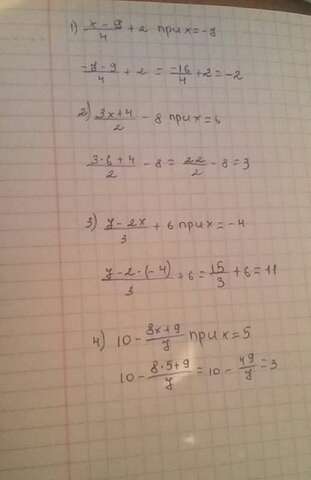 1) (x - 9)/4 + 2 при x = -7
(-7 - 9)/4 + 2 = (-16)/4 + 2 = -2
2) (3x + 4)/2 - 8 при x = 6
(3·6 + 4)/2 - 8 = 22/2 - 8 = 3
3) (7 - 2x)/3 + 6 при x = -4
(7 - 2·(-4))/3 + 6 = 15/3 + 6 = 11
4) 10 - (8x + 9)/7 при x = 5
10 - (8·5 + 9)/7 = 10 - 49/7 = 3